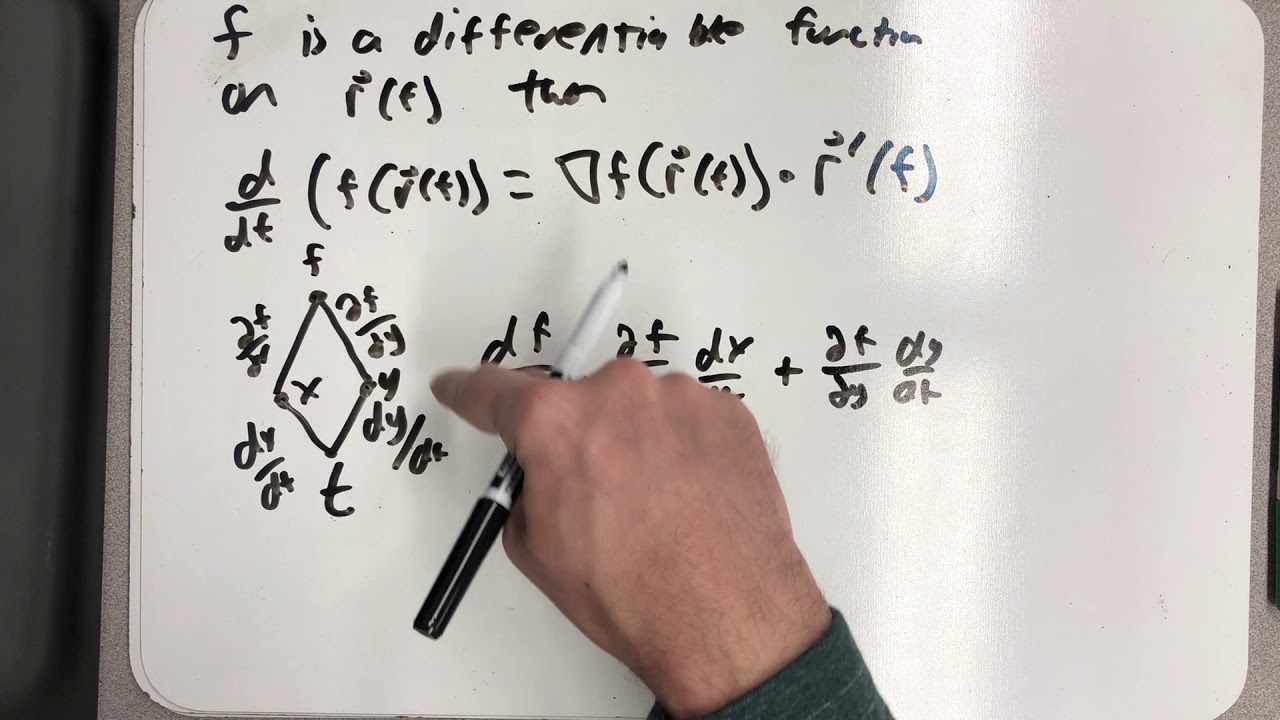 f is a differentiable function
on r⃗(t) then
d/dt (f(r⃗(t)) = ∇f(r⃗(t)) · r⃗'(t)
f
∂f/∂x ∂f/∂y
x y
dx/dt dy/dt
t
df ∂f dx + ∂f/∂y dy/dt